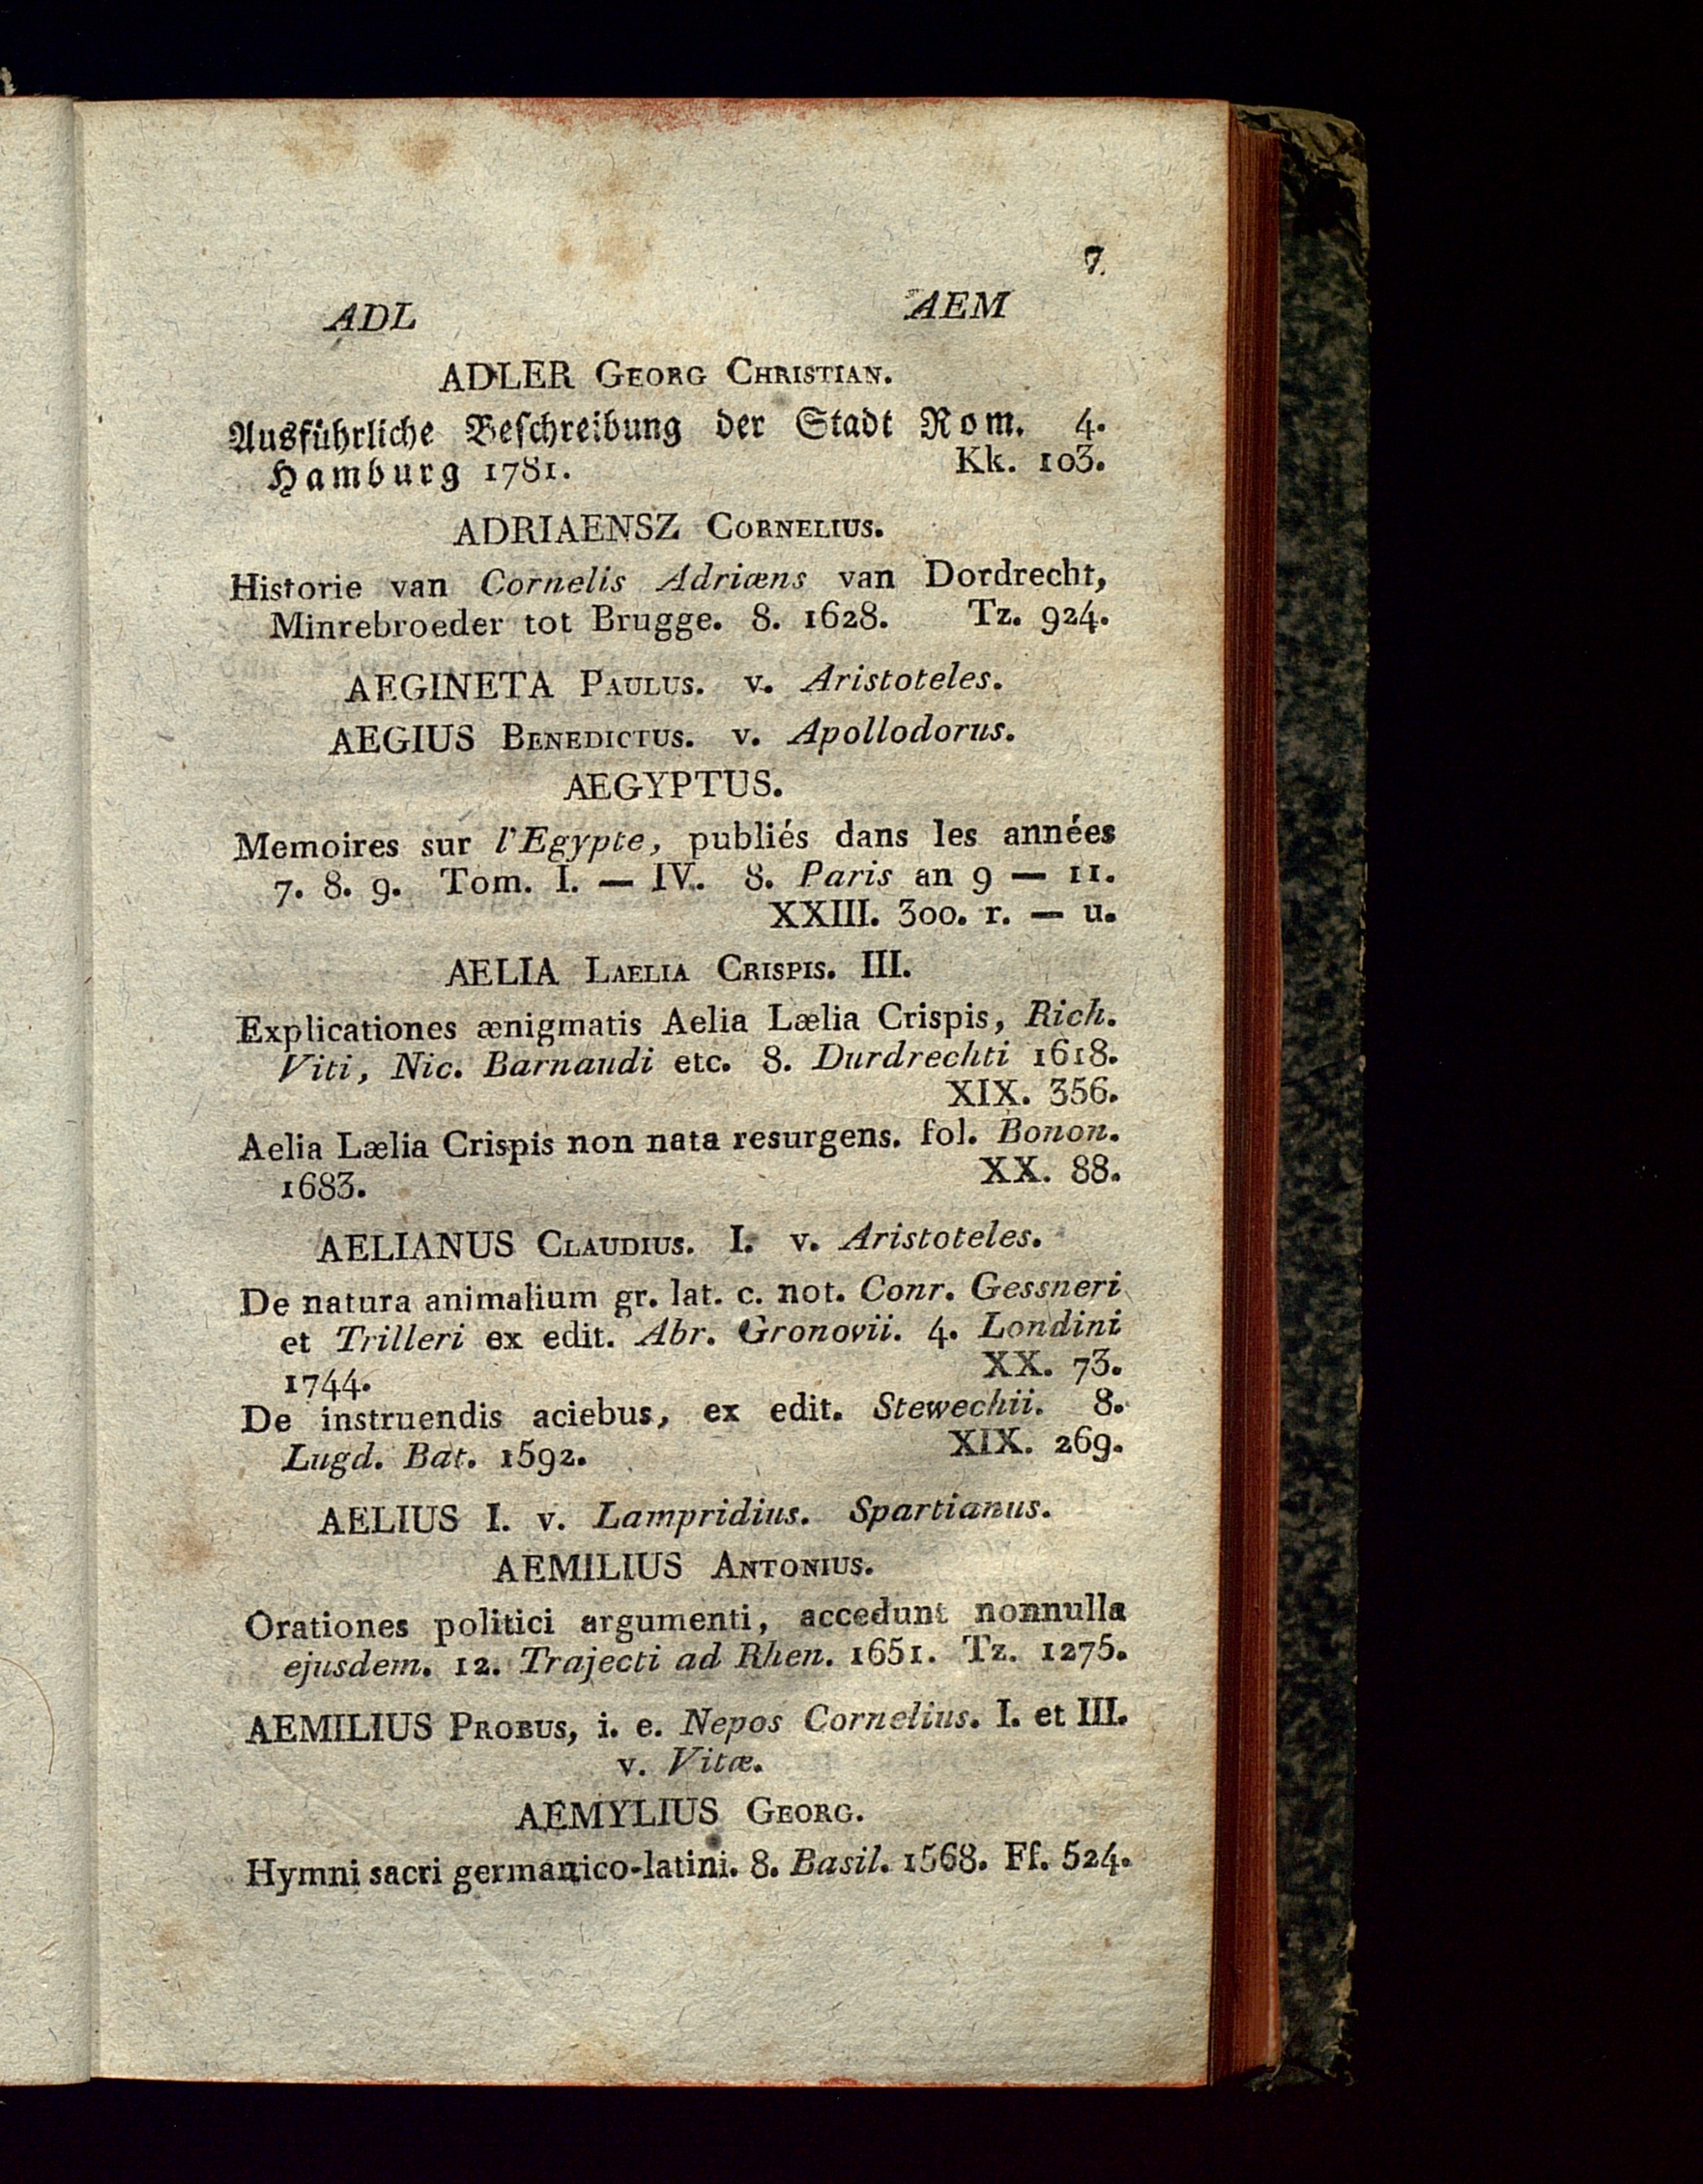 7.
ADL AEM
ADLER GEORG CHRISTIAN.
Ausführliche Beſchreibung der Stadt Rom. 4.
Hamburg 1781. Kk. 103.
ADRIAENSZ CORNELIUS.
Historie van Cornelis Adriæns van Dordrecht,
Minrebroeder tot Brugge. 8. 1628. Tz. 924.
AEGINETA PAULUS. v. Aristoteles.
AEGIUS BENEDICTUS. v. Apollodorus.
AEGYPTUS.
Memoires sur l'Egypte, publiés dans les années
7. 8. 9. Tom. I. — IV. 8. Paris an 9 — 11.
XXIII. 300. r. — u.
AELIA LAELIA CRISPIS. III.
Explicationes ænigmatis Aelia Lælia Crispis, Rich.
Viti, Nic. Barnaudi etc. 8. Durdrechti 1618.
XIX. 356.
Aelia Lælia Crispis non nata resurgens. fol. Bonon.
1683. XX. 88.
AELIANUS CLAUDIUS. I. v. Aristoteles.
De natura animalium gr. lat. c. not. Conr. Gessneri
et Trilleri ex edit. Abr. Gronovii. 4. Londini
1744. XX. 73.
De instruendis aciebus, ex edit. Stewechii. 8.
Lugd. Bat. 1592. XIX. 269.
AELIUS I. v. Lampridius. Spartianus.
AEMILIUS ANTONIUS.
Orationes politici argumenti, accedunt nonnulla
ejusdem. 12. Trajecti ad Rhen. 1651. Tz. 1275.
AEMILIUS PROBUS, i. e. Nepos Cornelius. I. et III.
v. Vitæ.
AEMYLIUS GEORG.
Hymni sacri germanico-latini. 8. Basil. 1568. Ff. 524.